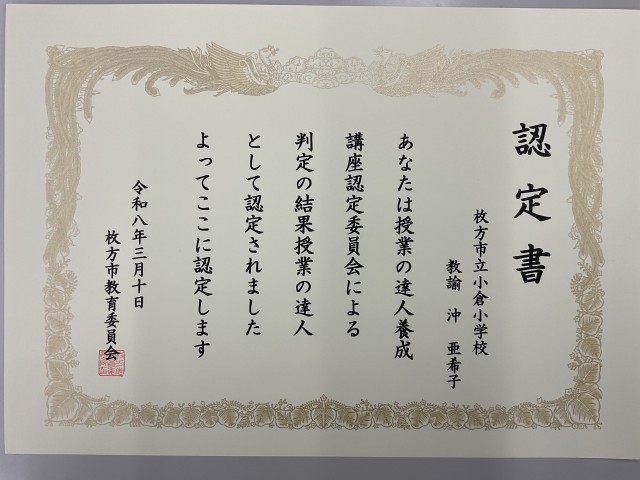 認定書
枚方市立小倉小学校
教諭　沖　亜希子
あなたは授業の達人養成
講座認定委員会による
判定の結果授業の達人
として認定されました
よってここに認定します
令和八年三月十日
枚方市教育委員会